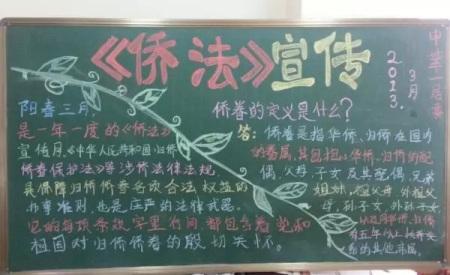 《侨法》宣传
2013.3月
中华一居委
阳春三月,
是一年一度的《侨法》
宣传月。《中华人民共和国归侨
侨眷保护法》等涉侨法律法规
具保障归侨侨眷各项合法权益的
办事准则,也是庄严的法律武器。
它的每项条款字里行间都包含着党和
祖国对归侨侨眷的殷切关怀。
侨眷的定义是什么?
答:侨眷是指华侨、归侨在国内
的眷属,其包括:华侨、归侨的配
偶,父母,子女及其配偶,兄弟
姐妹,祖父母,外祖父
母,孙子女,外孙子女,
以及同华侨、归侨
有五年以上扶养关
系的其他亲属。